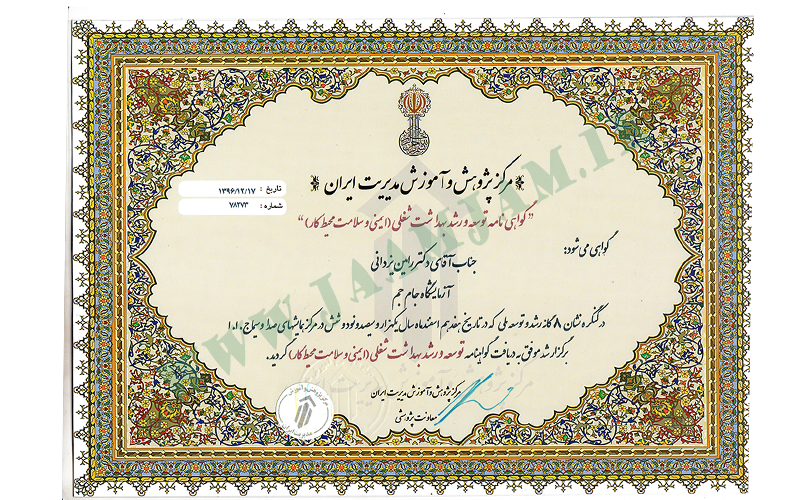 مرکز پژوهش و آموزش مدیریت ایران
تاریخ : ۱۳۹۶/۱۲/۱۷
شماره : ۷۸۲۷۳
"گواهی نامه توسعه و رشد بهداشت شغلی (ایمنی و سلامت محیط کار)"
گواهی می شود:
جناب آقای دکتر رامین یزدانی
آزمایشگاه جام جم
در کنگره نشان ۸ گانه رشد و توسعه ملی که در تاریخ هفدهم اسفندماه سال یکهزار و سیصد و نود و شش در مرکز همایشهای صدا و سیما ج.ا.ا
برگزار شد موفق به دریافت گواهینامه توسعه و رشد بهداشت شغلی (ایمنی و سلامت محیط کار) گردید.
مرکز پژوهش و آموزش مدیریت ایران
معاونت پژوهشی
WWW.JAAMJAM.I